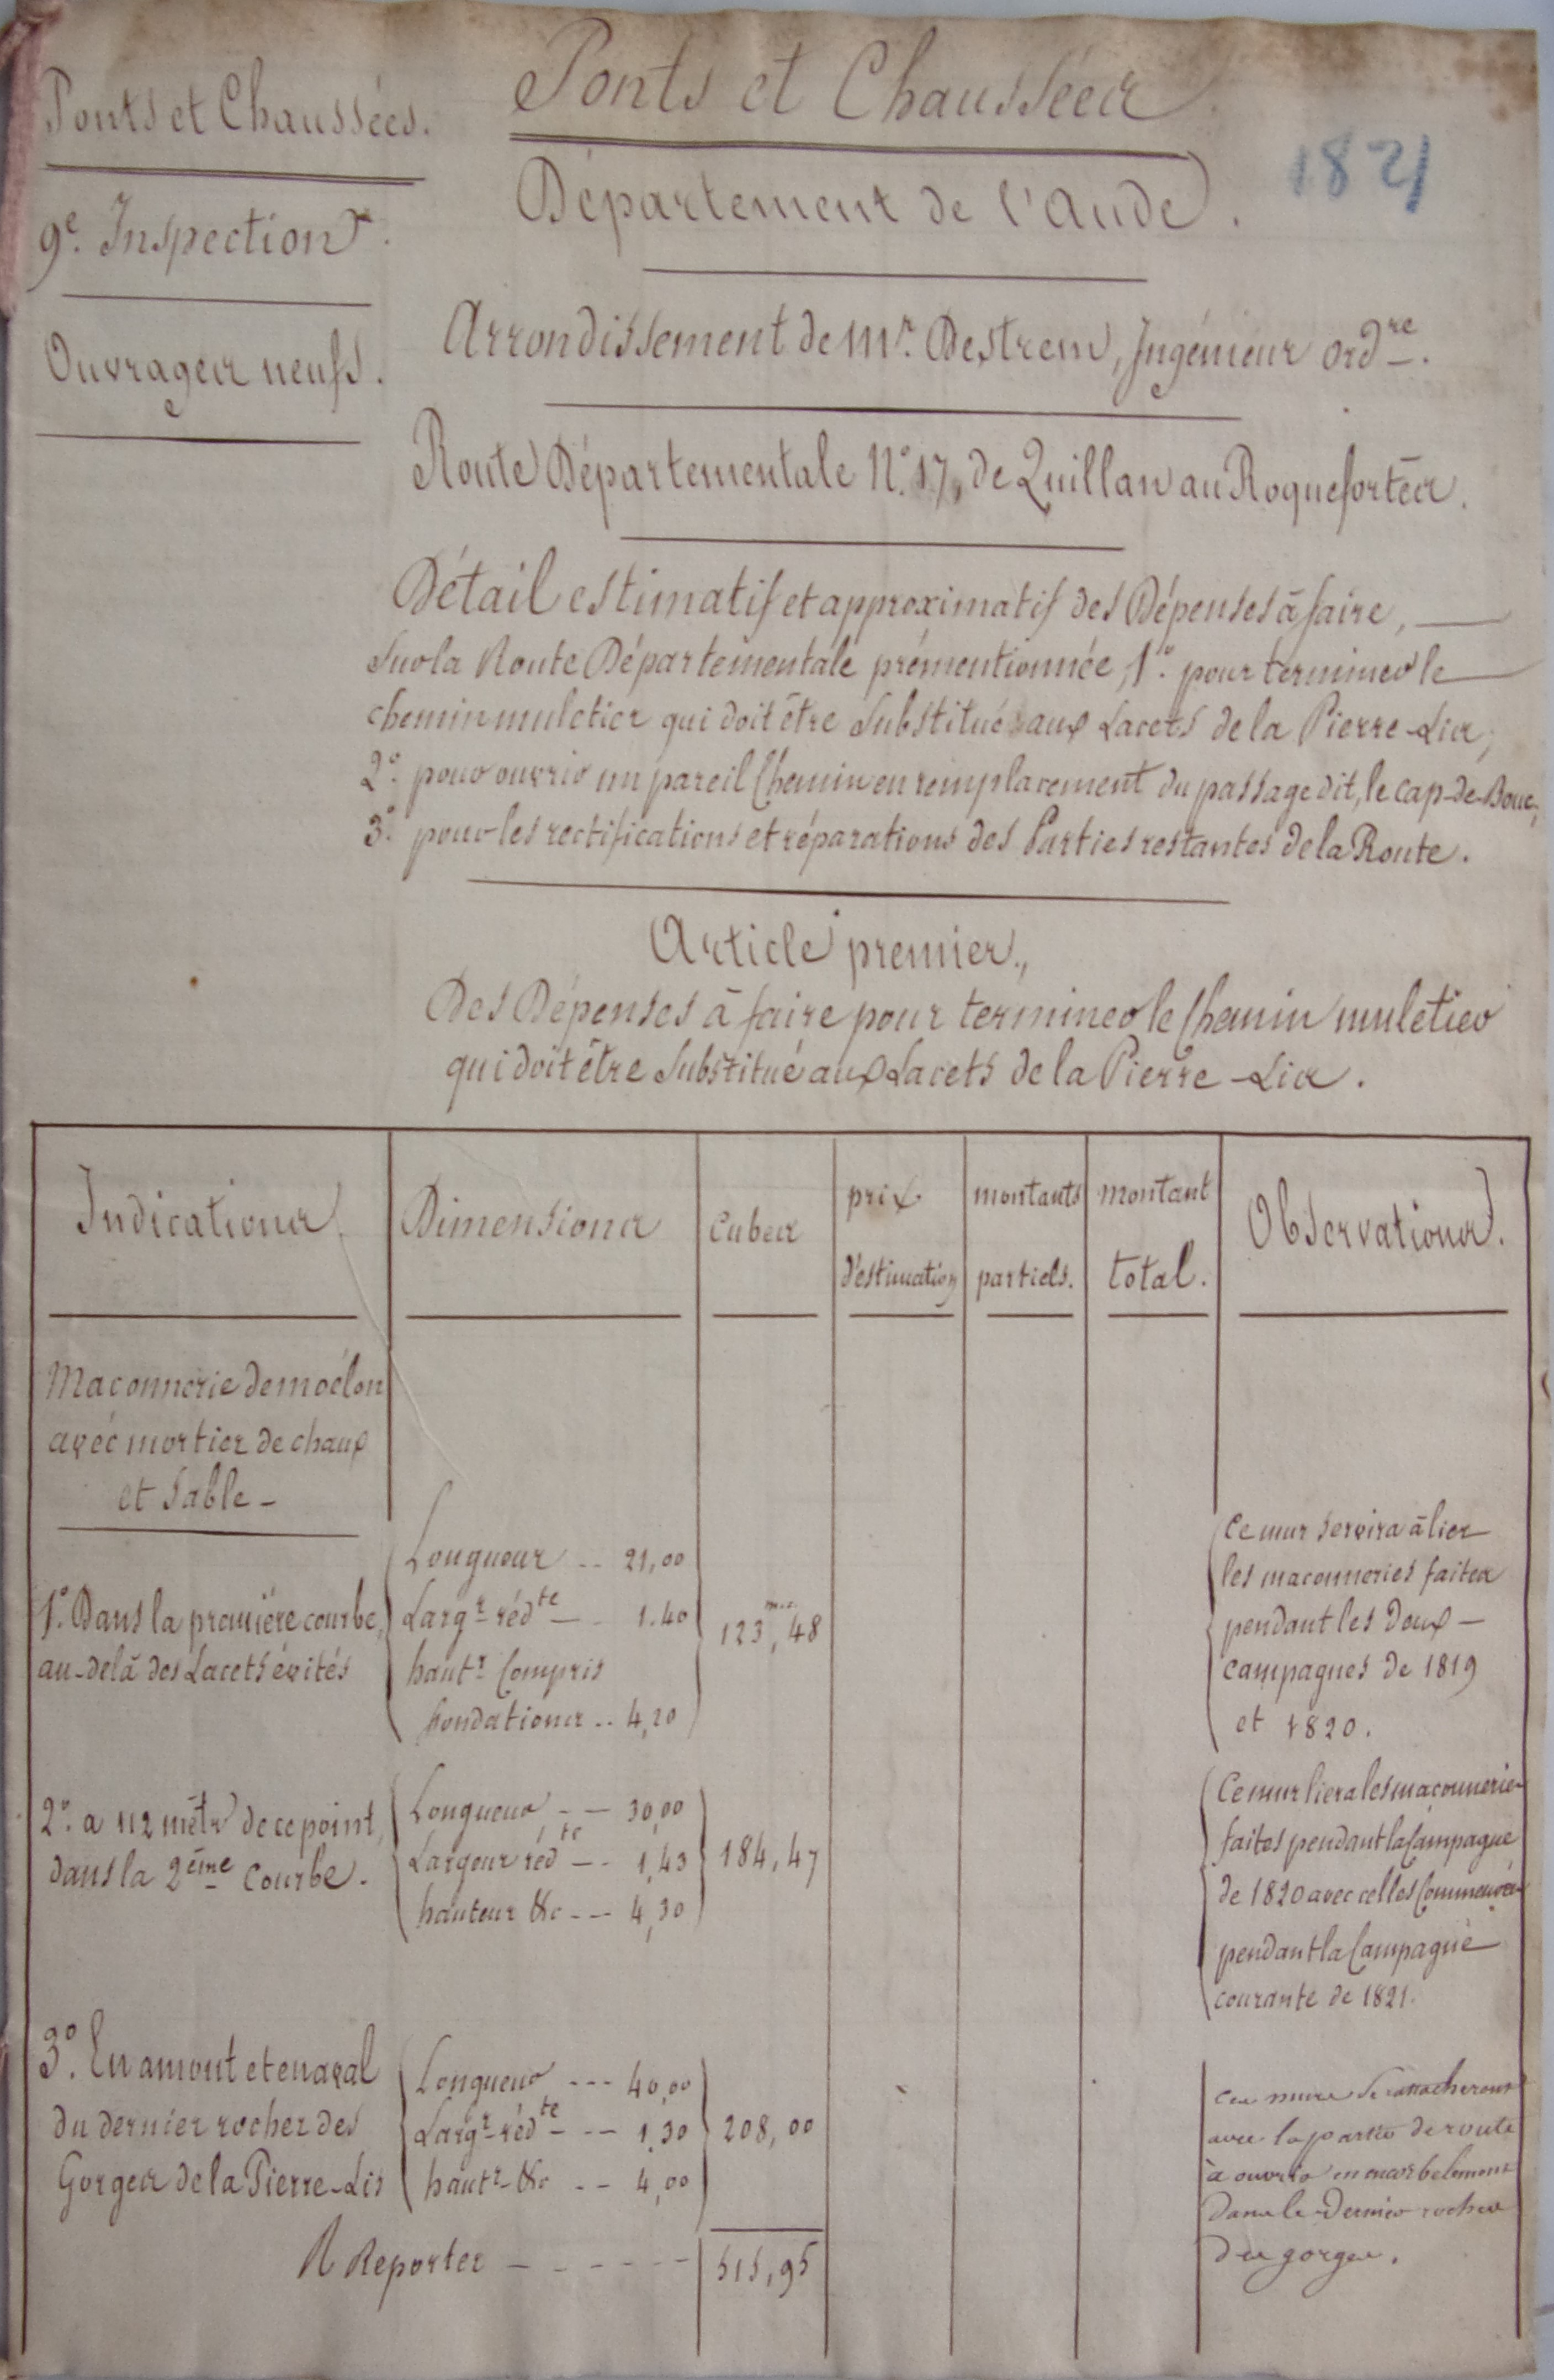 Ponts et Chaussées.
9e. Inspection.
Ouvrages neufs.
Ponts et Chaussées
1821
Département de l'Aude.
Arrondissement de Mr. Destrem, Ingénieur ordre.
Route Départementale N°. 17, de Quillan au Roquefortés.
Détail estimatif et approximatif des Dépenses à faire,
Sur la Route Départementale prémentionnée, 1°. pour terminer le
chemin muletier qui doit être Substitué aux Lacets de la Pierre-Lis;
2°. pour ouvrir un pareil Chemin en remplacement du passage dit, le Cap-de-Bouc;
3°. pour les rectifications et réparations des Parties restantes de la Route.
Article premier.,
Des Dépenses à faire pour terminer le Chemin muletier
qui doit être Substitué aux Lacets de la Pierre-Lis.
Indications Dimensions Cubes prix d'estimation montants partiels. montant total. Observations.
Maçonnerie de moélon
avec mortier de chaux
et Sable -
1°. Dans la première courbe,
au-delà des Lacets évités
Longueur .. 21,00
Largr. rédte - . 1.40
hautr. Compris
fondations .. 4,20
123,m.c. 48
Ce mur servira à lier
les maçonneries faites
pendant les deux -
campagnes de 1819
et 1820.
2°. a 112 mètr. de ce point,
dans la 2ème Courbe.
Longueur - - 30,00
Largeur rédte - - 1,43
hauteur &c - - - 4,30
184,47
Ce mur liera les maçonneries
faites pendant la Campagne
de 1820 avec celles Commencées
pendant la Campagne
courante de 1821.
3°. En amont et en aval
du dernier rocher des
Gorges de la Pierre-Lis
Longueur - - - 40,00
Largr. rédte - - - 1,30
hautr. &c - - 4,00
208,00
Ces murs se rattacheront
avec la partie de route
à ouvrir en encorbelement
dans le dernier rocher
des gorges.
A Reporter - - - - - -
515,95